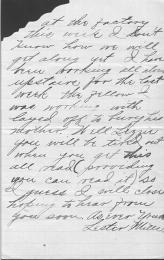 at the factory
this week I don't
know how we will
get along yet I have
been working all alone
upstairs for the last
week the fellow I
was working with
layed off to bury his
mother. Well Lizzie
you will be tired out
when you get this
all read (providing
you can read it) so
I guess I will close
hoping to hear from
you soon. As ever Yours
Lester Miller